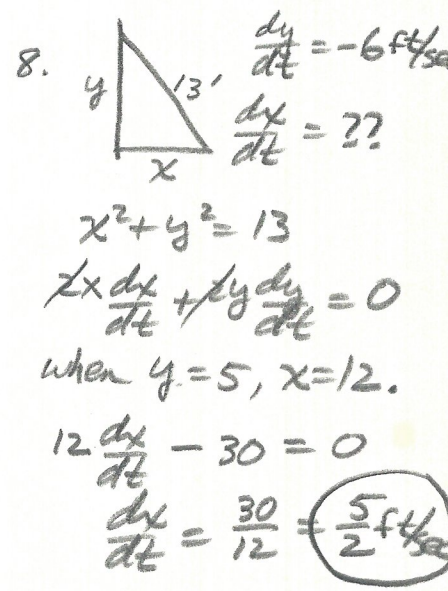 8. y 13' x
dy/dt = -6 ft/sec
dx/dt = ??
x² + y² = 13
2x dx/dt + 2y dy/dt = 0
when y = 5, x = 12.
12 dx/dt - 30 = 0
dx/dt = 30/12 = 5/2 ft/sec